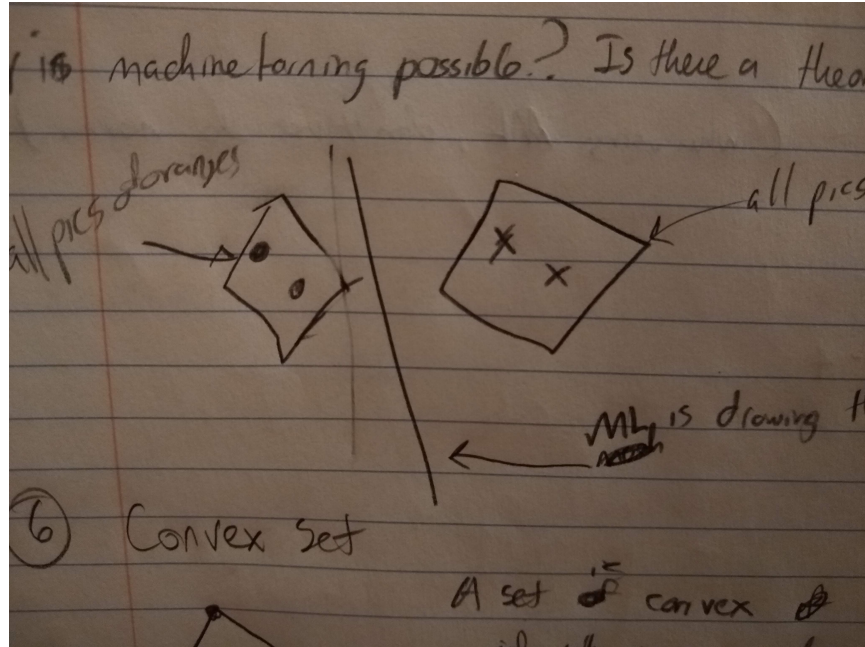 is machine learning possible? Is there a theo
all pics of oranges
all pics
ML is drawing th
6 Convex Set
A set is convex